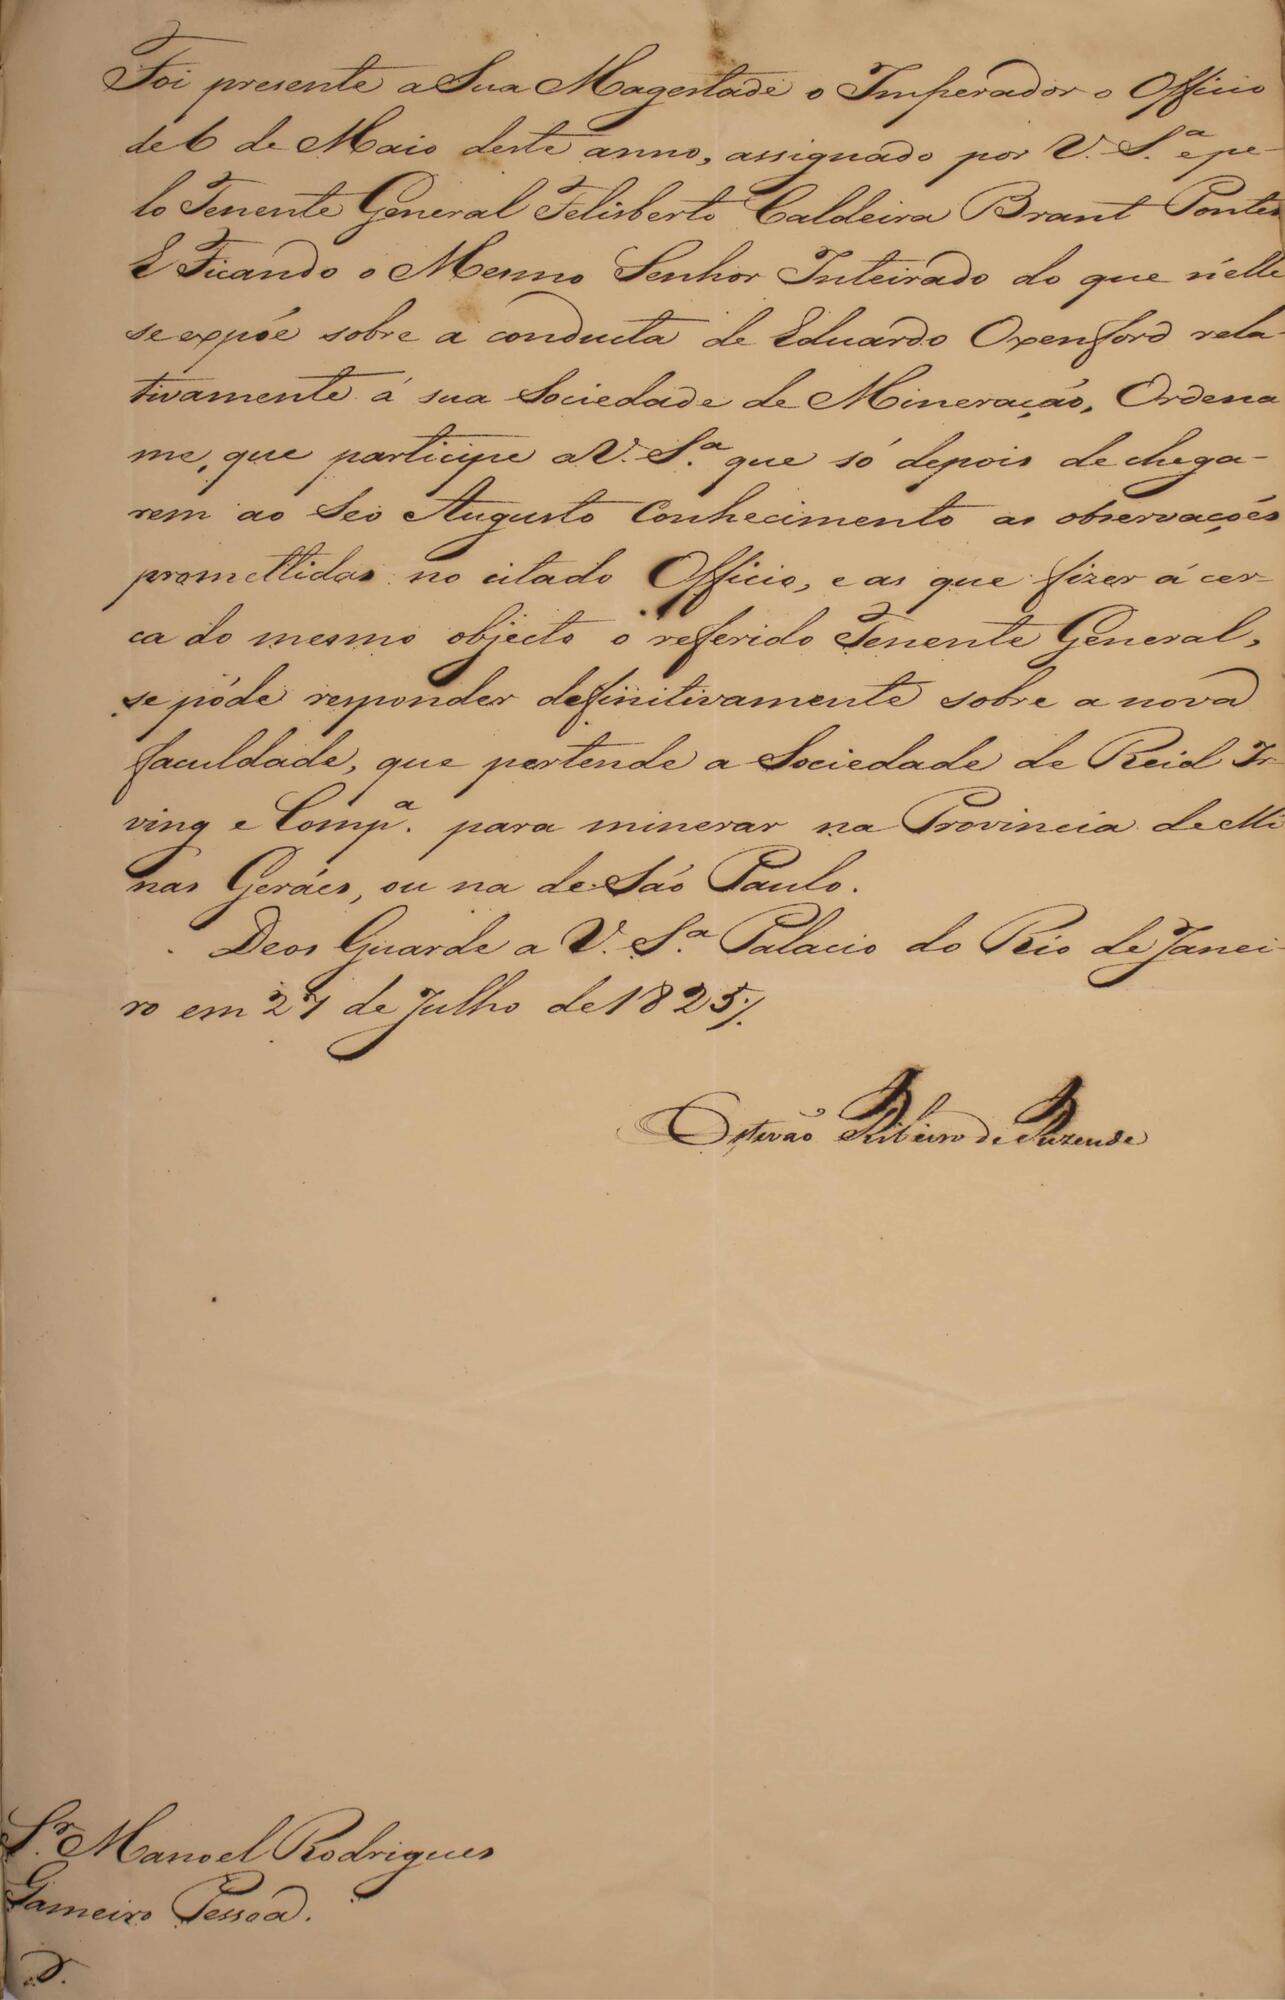 Foi presente a Sua Magestade o Imperador o Officio
de 6 de Maio deste anno, assignado por V. S.ª e pe-
lo Tenente General Felisberto Caldeira Brant Pontes
E Ficando o Mesmo Senhor Inteirado do que n'elle
se expõe sobre a conducta de Eduardo Oxenford rela-
tivamente á sua Sociedade de Mineração, Ordena
me, que participe a V. S.ª que só depois de chega-
rem ao Seo Augusto Conhecimento as observações
promettidas no citado Officio, e as que fizer á cer-
ca do mesmo objecto o referido Tenente General,
se póde responder definitivamente sobre a nova
faculdade, que pertende a Sociedade de Reid Ir-
ving e Comp.ª para minerar na Provincia de Mi
nas Geráes, ou na de São Paulo.
Deos Guarde a V. S.ª Palacio do Rio de Janei-
ro em 27 de Julho de 1825/.
Estevão Ribeiro de Rezende
Sr. Manoel Rodrigues
Gameiro Pessoa.